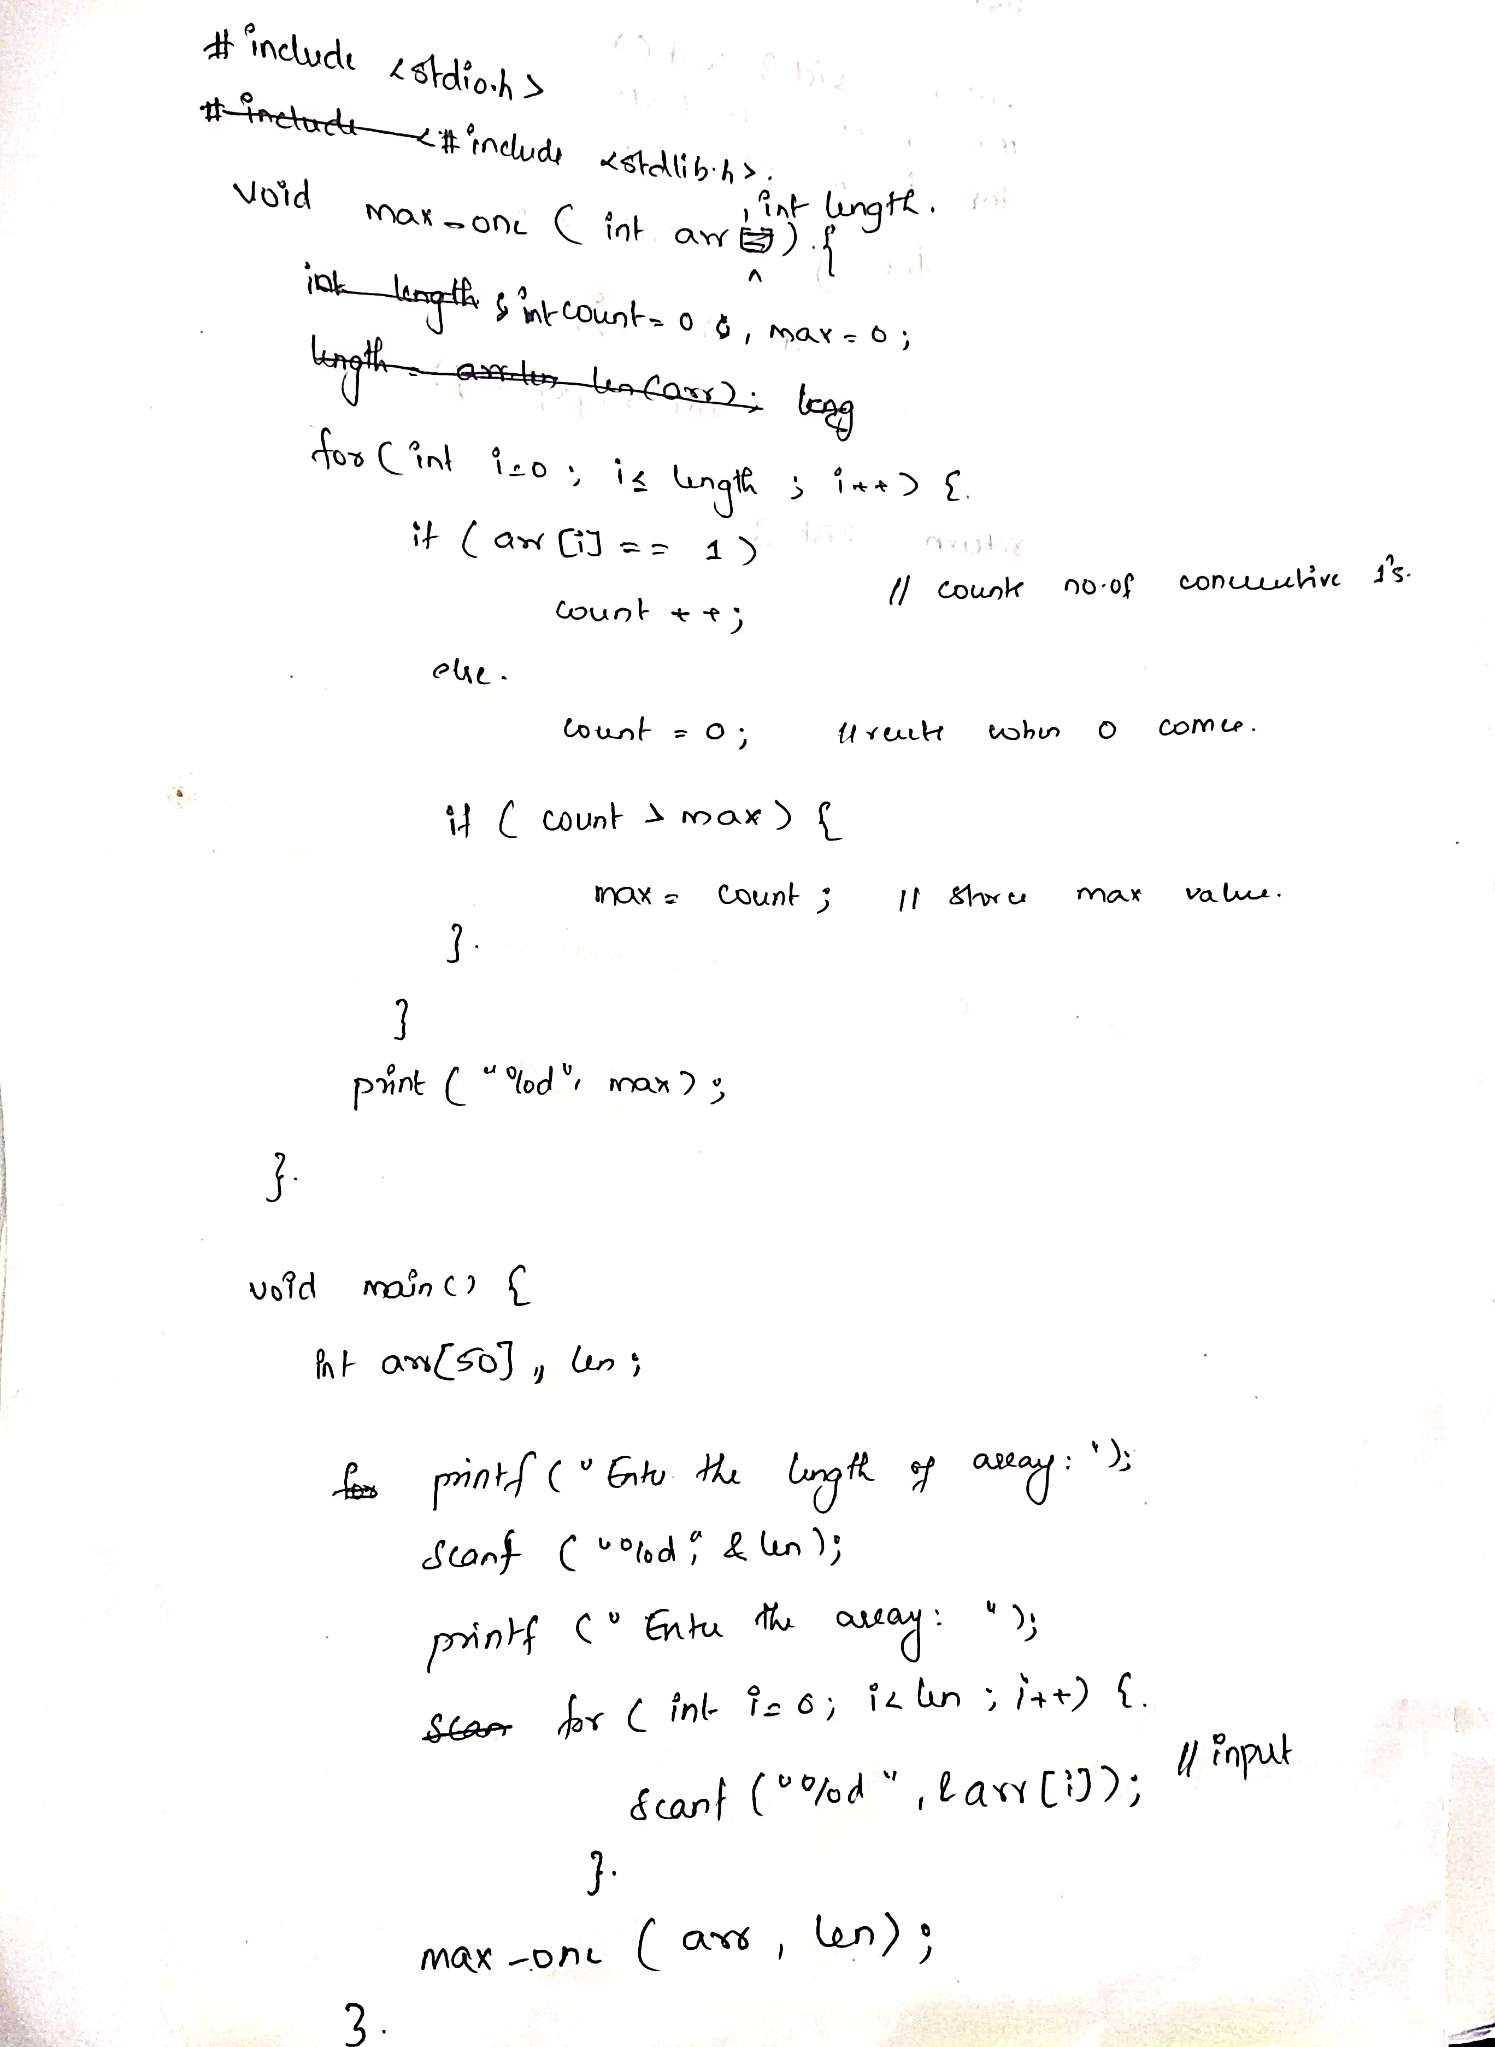 #include <stdio.h>
#include <#include <stdlib.h>.
, int length.
void max_one ( int arr ) {
int length ; int count = 0 , max = 0 ;
length = len(arr); leng
for ( int i=0 ; i≤ length ; i++) {.
if ( arr [i] == 1 )
count ++; // counts no.of consecutive 1's.
else.
count = 0; // resets when 0 comes.
if ( count > max) {
max = count ; // stores max value.
}.
}
print ( "%d", max) ;
}.
void main() {
int arr[50] , len ;
for printf ( " Enter the length of array: ");
scanf ( "%d", & len );
printf ( " Enter the array: " );
scan for ( int i= 0; i< len ; i++) {.
scanf ( "%d ", & arr [i]); // input
}.
max_one ( arr , len) ;
}.